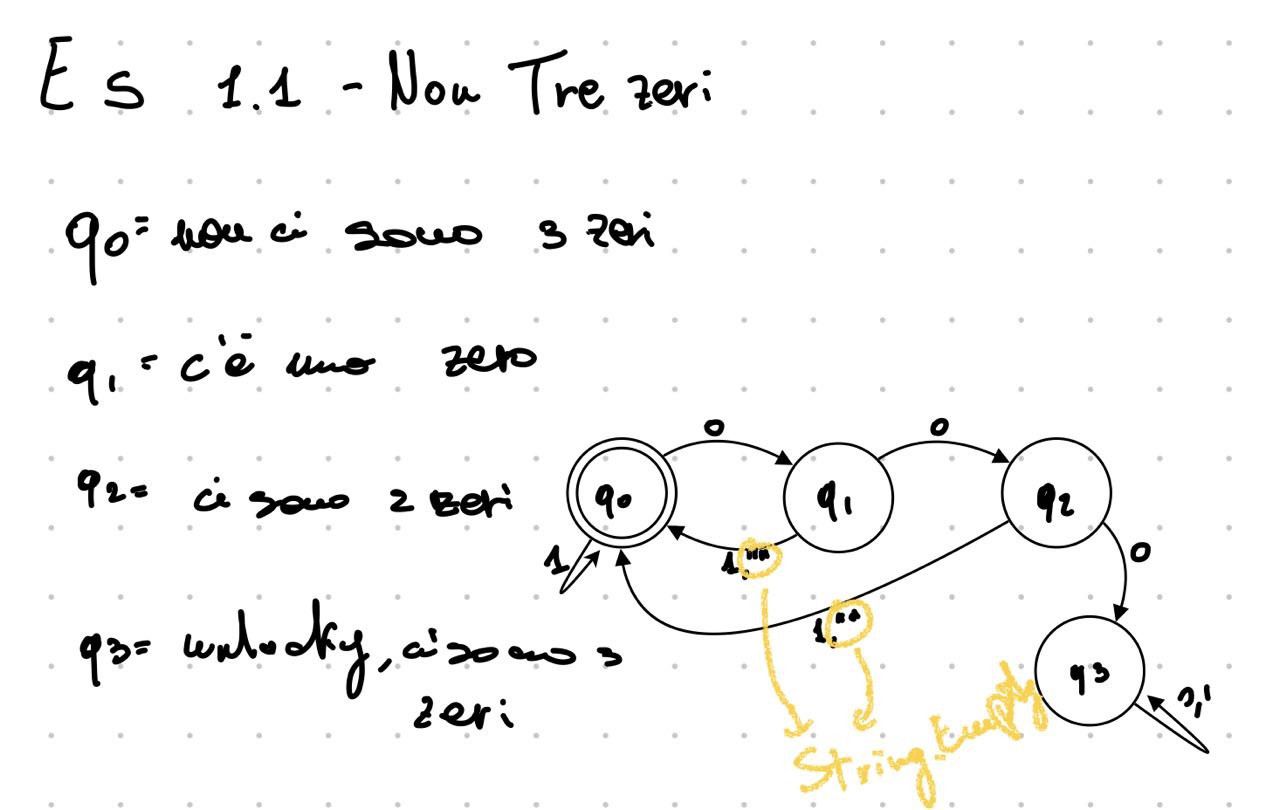 Es 1.1 - Non Tre zeri
q0= non ci sono 3 zeri
q1= c'è uno zero
q2= ci sono 2 zeri
q3= unlucky, ci sono 3
zeri
0
0
q0
q1
q2
1
1,""
0
1,""
q3
String.Empty